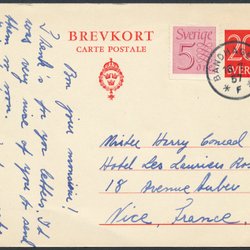 BREVKORT
CARTE POSTALE
Sverige
5 ÖRE
20
SVERI
BANDHAGEN
51
* F
Mister Harry Conrad
Hotel Les Lauriers Roses
18 Avenue Auber
Nice, France.
Bon jour monsieur!
Thank's for your letters. It
was very nice of you to send
them so soon.